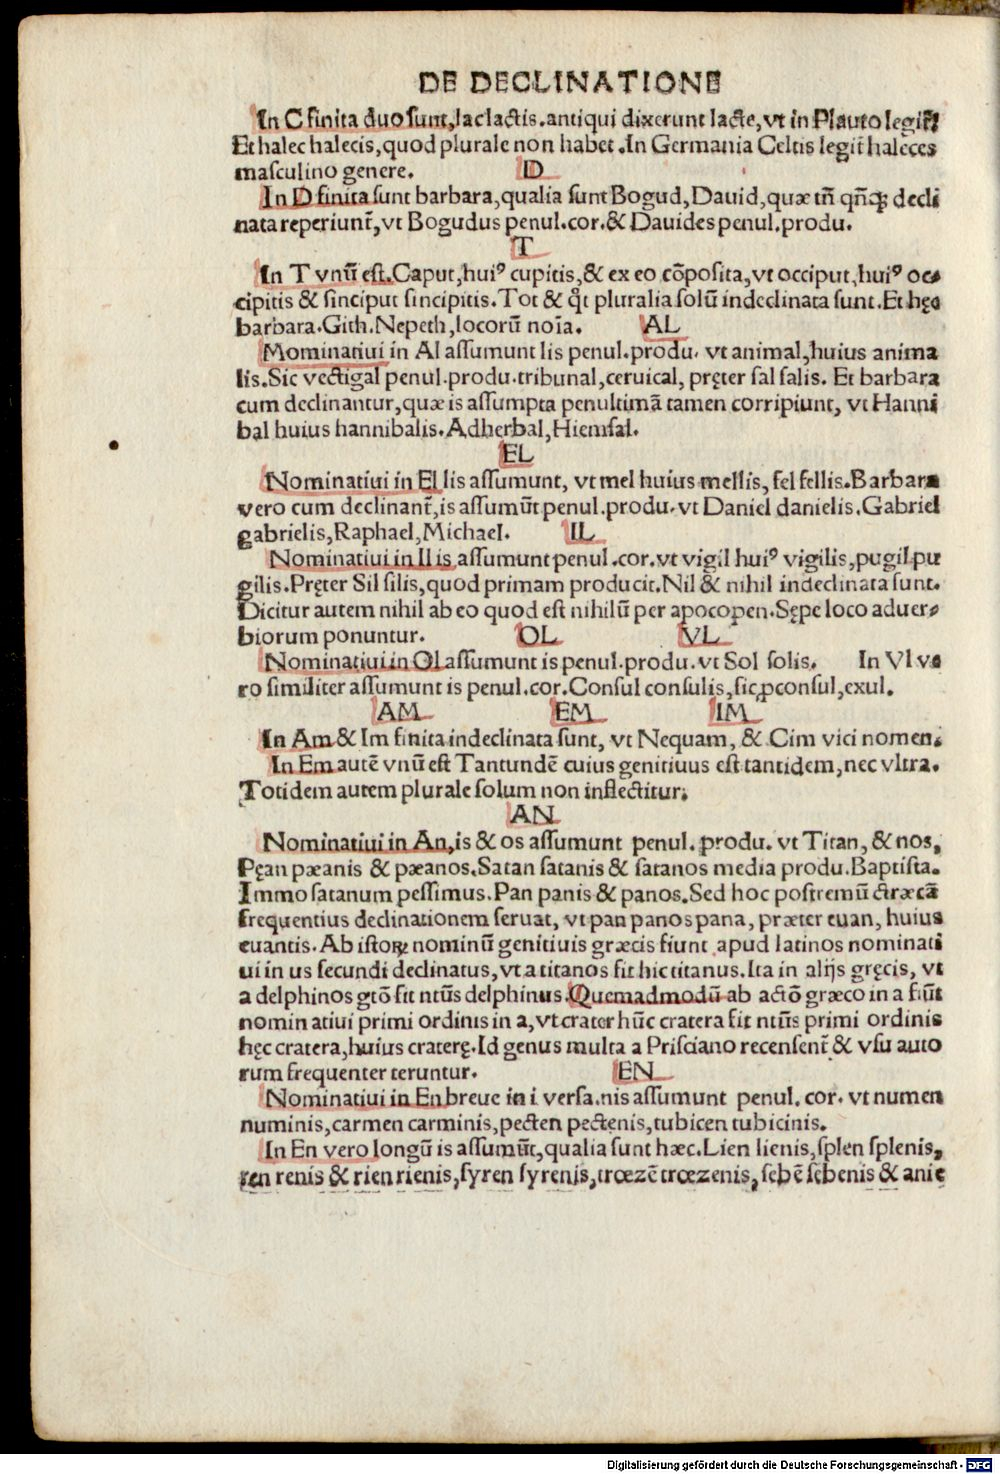 DE DECLINATIONE
In C finita duo sunt, lac lactis. antiqui dixerunt lacte, vt in Plauto legit̃
Et halec halecis, quod plurale non habet. In Germania Celtis legit̃ haleces
masculino genere. D
In D finita sunt barbara, qualia sunt Bogud, Dauid, quæ tñ qñꝙ decli
nata reperiunt̃, vt Bogudus penul. cor. & Dauides penul. produ.
T
In T vnũ est. Caput, huiꝰ cupitis, & ex eo cõposita, vt occiput, huiꝰ oc-
cipitis & sinciput sincipitis. Tot & qͦt pluralia solũ indeclinata sunt. Et hęc
barbara. Gith. Nepeth, locorũ noĩa. AL
Mominatiui in Al assumunt lis penul. produ. vt animal, huius anima
lis. Sic vectigal penul. produ. tribunal, ceruical, pręter sal salis. Et barbara
cum declinantur, quæ is assumpta penultimã tamen corripiunt, vt Hanni
bal huius hannibalis. Adherbal, Hiemsal.
EL
Nominatiui in El lis assumunt, vt mel huius mellis, fel fellis. Barbara
vero cum declinant̃, is assumũt penul. produ. vt Daniel danielis. Gabriel
gabrielis, Raphael, Michael. IL
Nominatiui in Il is assumunt penul. cor. vt vigil huiꝰ vigilis, pugil pu
gilis. Pręter Sil silis, quod primam producit. Nil & nihil indeclinata sunt.
Dicitur autem nihil ab eo quod est nihilũ per apocopen. Sępe loco aduer-
biorum ponuntur. OL VL
Nominatiui in Ol assumunt is penul. produ. vt Sol solis. In Vl ve
ro similiter assumunt is penul. cor. Consul consulis, sic ꝓconsul, exul.
AM EM IM
In Am & Im finita indeclinata sunt, vt Nequam, & Cim vici nomen.
In Em autẽ vnũ est Tantundẽ cuius genitiuus est tantidem, nec vltra.
Totidem autem plurale solum non inflectitur.
AN
Nominatiui in An, is & os assumunt penul. produ. vt Titan, & nos,
Pęan pæanis & pæanos. Satan satanis & satanos media produ. Baptista.
Immo satanum pessimus. Pan panis & panos. Sed hoc postremũ græcã
frequentius declinationem seruat, vt pan panos pana, præter euan, huius
euantis. Ab istoꝝ nominũ genitiuis græcis fiunt apud latinos nominati
ui in us secundi declinatus, vt a titanos fit hic titanus. Ita in alijs gręcis, vt
a delphinos gtõ fit ntũs delphinus. Quemadmodũ ab actõ græco in a fiũt
nominatiui primi ordinis in a, vt crater hũc cratera fit ntũs primi ordinis
hęc cratera, huius craterę. Id genus multa a Prisciano recensent̃ & vsu auto
rum frequenter teruntur. EN
Nominatiui in En breue in i versa. nis assumunt penul. cor. vt numen
numinis, carmen carminis, pecten pectenis, tubicen tubicinis.
In En vero longũ is assumũt, qualia sunt hæc. Lien lienis, splen splenis,
ren renis & rien rienis, syren syrenis, trœzẽ trœzenis, sebẽ sebenis & anie
Digitalisierung gefördert durch die Deutsche Forschungsgemeinschaft - DFG